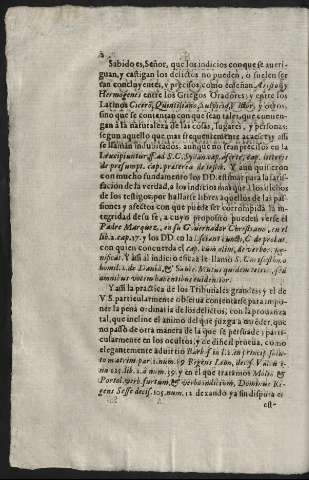 2
Sabido es, Señor, que los indicios con que se averi-
guan, y castigan los delictos no pueden, o suelen ser
tan concluyentes, y precisos, como enseñan Ariston, y
Hermogenes entre los Griegos Oradores; y entre los
Latinos Ciceró, Quintiliano, Sulpicio, Victor, y otros,
sino que se contentan con que sean tales, que conven-
gan à la naturaleza de las cosas, lugares, y personas
segun aquello que mas frequentemente acaece, y assi
se llaman indubitados, aunque no sean precisos en la
de presumpt. cap. præterea de testib. Y aun quisieron
con mucho fundamento los DD. estimar para la satis-
facion de la verdad, a los indicios mas que à los dichos
de los testigos, por hallarse libres aquellos de las pas-
siones y afectos con que puede ser corrompida la in-
tegridad desu fè, a cuyo proposito pueden verse el
Padre Marquez, en su Governador Christiano, en el
lib. 2. cap. 37. y los DD. en la l. sciant cuncti, C. de probat.
con quien concuerda el cap. cùm olim, de verbor. sig-
nificat. Y assi al indicio eficaz le llamò S.
homil. 2. de David, & Saule. Mutus quidem testis, sed
omnibus vocem habentibus evidentior.
Y assi la practica de los Tribunales grandes y el de
V. S. particularmente observa contentarse para impo-
ner la pena ordinaria de los delictos, con la provanza
tal, que incline el animo del que juzga a creder, que
no passò de otra manera de la que se persuade; parti-
cularmente en los ocultos, y de dificil prueva, como
elegantemente advirtio Barb. in l. 2. in princip. solu-
to matrim. par. 1. num. 59. Regens Leon, decis. Valen
tin 225. lib. 2. à num. 59. y en el que tratamos Molin. &
Portol. verb. furtum, & verbo indicium, Dominus Re-
gens Sesse decis. 105. num. 12 dexando ya sin disputa el
est-